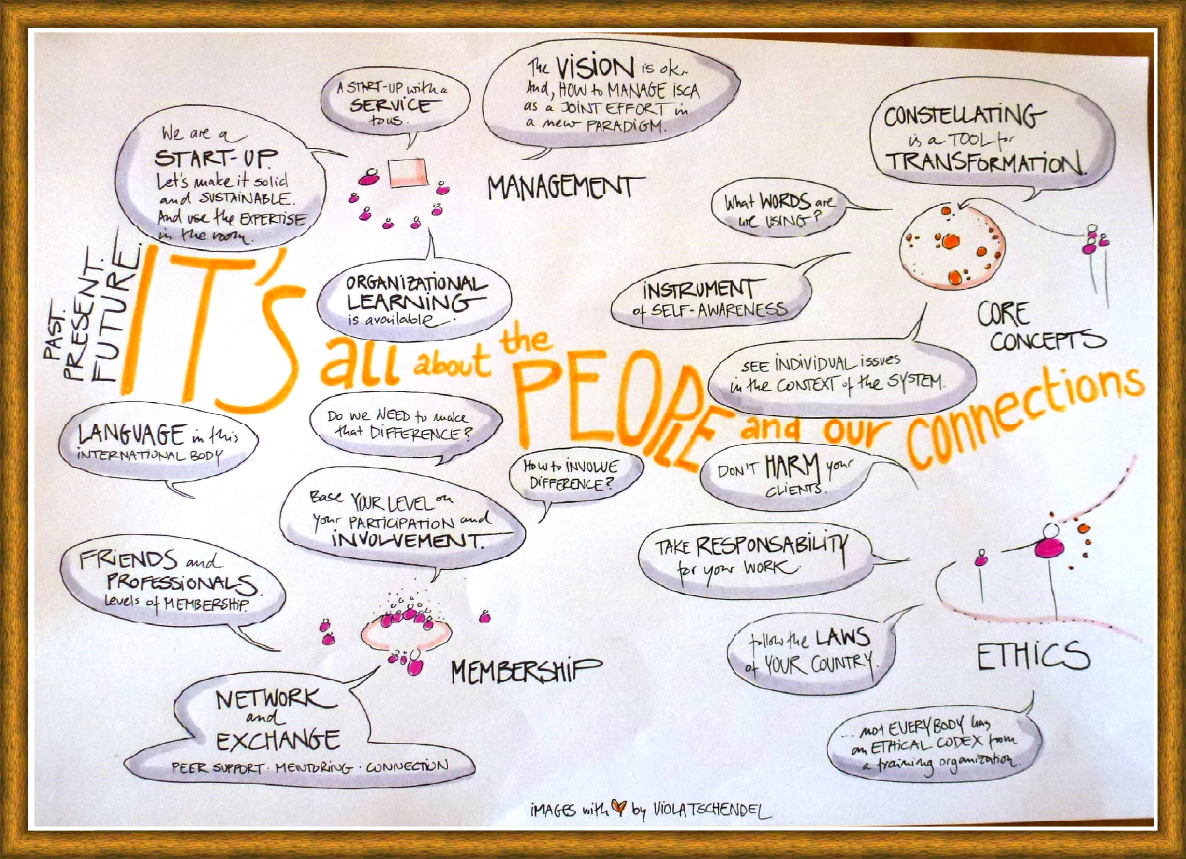 We are a
START-UP.
Let's make it solid
and SUSTAINABLE.
And use the EXPERTISE
in the room.
A START-UP with a
SERVICE
to us.
The VISION is ok..
And, HOW to MANAGE ISCA
as a JOINT EFFORT in
a new PARADIGM.
MANAGEMENT
ORGANIZATIONAL
LEARNING
is available.
CONSTELLATING
is a TOOL for
TRANSFORMATION.
What WORDS are
we USING?
INSTRUMENT
of SELF-AWARENESS
SEE INDIVIDUAL issues
in the CONTEXT of the SYSTEM.
CORE
CONCEPTS
PAST.
PRESENT.
FUTURE.
IT'S all about the PEOPLE and our connections
LANGUAGE in this
INTERNATIONAL BODY
Do we NEED to make
that DIFFERENCE?
How to INVOLVE
DIFFERENCE?
Base YOUR LEVEL on
your PARTICIPATION and
INVOLVEMENT.
FRIENDS and
PROFESSIONALS.
Levels of MEMBERSHIP.
MEMBERSHIP
NETWORK
and
EXCHANGE
PEER SUPPORT · MENTORING · CONNECTION
DON'T HARM your
CLIENTS.
TAKE RESPONSABILITY
for your WORK.
follow the LAWS
of YOUR COUNTRY.
ETHICS
... not EVERYBODY has
an ETHICAL CODEX from
a training organization
IMAGES with by VIOLA TSCHENDEL